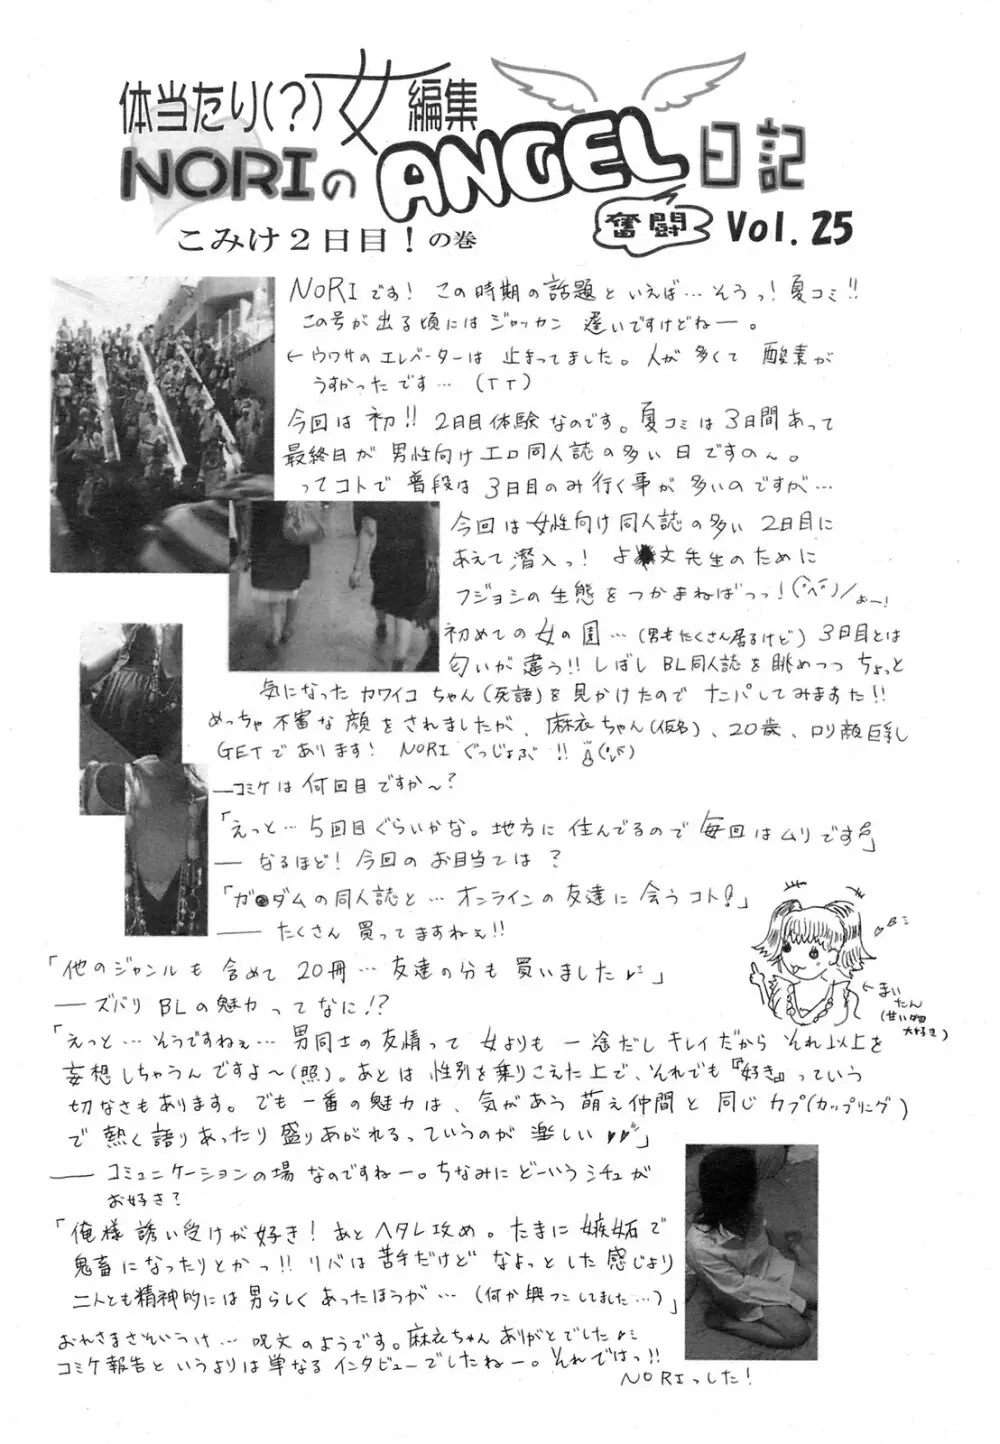 体当たり(?)女編集
NORIのANGEL日記
奮闘 Vol.25
こみけ2日目!の巻
NORIです! この時期の話題といえば…そうっ! 夏コミ!!
この号が出る頃にはジャッカン 遅いですけどねー。
←ウワサのエレベーターは 止まってました。人が多くて 酸素が
うすかったです…(TT)
今回は初!! 2日目体験なのです。夏コミは3日間あって
最終日が男性向けエロ同人誌の多い日ですの〜。
ってコトで普段は3日目のみ行く事が多いのですが…
今回は女性向け同人誌の多い 2日目に
あえて潜入っ! よ 文先生のために
フジョシの生態をつかまねばっっ!(^ヘ^)/ おー!
初めての女の園…(男もたくさん居るけど) 3日目とは
匂いが違う!! しばしBL同人誌を眺めつつ ちょっと
気になったカワイコちゃん(死語)を見かけたのでナンパしてみますた!!
めっちゃ不審な顔をされましたが、麻衣ちゃん(仮名)、20歳、ロリ顔巨乳
GETであります! NORIぐっじょぶ!!
―コミケは何回目ですか〜?
「えっと…5回目ぐらいかな。地方に住んでるので毎回はムリです」
―なるほど! 今回のお目当ては?
「ガ●ダムの同人誌と…オンラインの友達に会うコト!」
―たくさん買ってますねぇ!!
「他のジャンルも含めて20冊…友達の分も買いました♪」
―ズバリBLの魅力ってなに!?
←まい
たん
(甘い物
大好き)
「えっと…そうですねぇ…男同士の友情って女よりも一途だしキレイだからそれ以上を
妄想しちゃうんですよ〜(照)。あとは性別を乗りこえた上で、それでも『好き』っていう
切なさもあります。でも一番の魅力は、気があう萌え仲間と同じカプ(カップリング)
で熱く語りあったり盛りあがれるっていうのが楽しい♥♥」
―コミュニケーションの場なのですねー。ちなみにどーいうシチュが
お好き?
「俺様誘い受けが好き! あとヘタレ攻め。たまに嫉妬で
鬼畜になったりとかっ!! リバは苦手だけどなよっとした感じより
二人とも精神的には男らしくあったほうが…(何か興フンしてました…)」
おれさまさそいうけ…呪文のようです。麻衣ちゃんありがとでした♪
コミケ報告というよりは単なるインタビューでしたねー。それではっ!!
NORIっした!